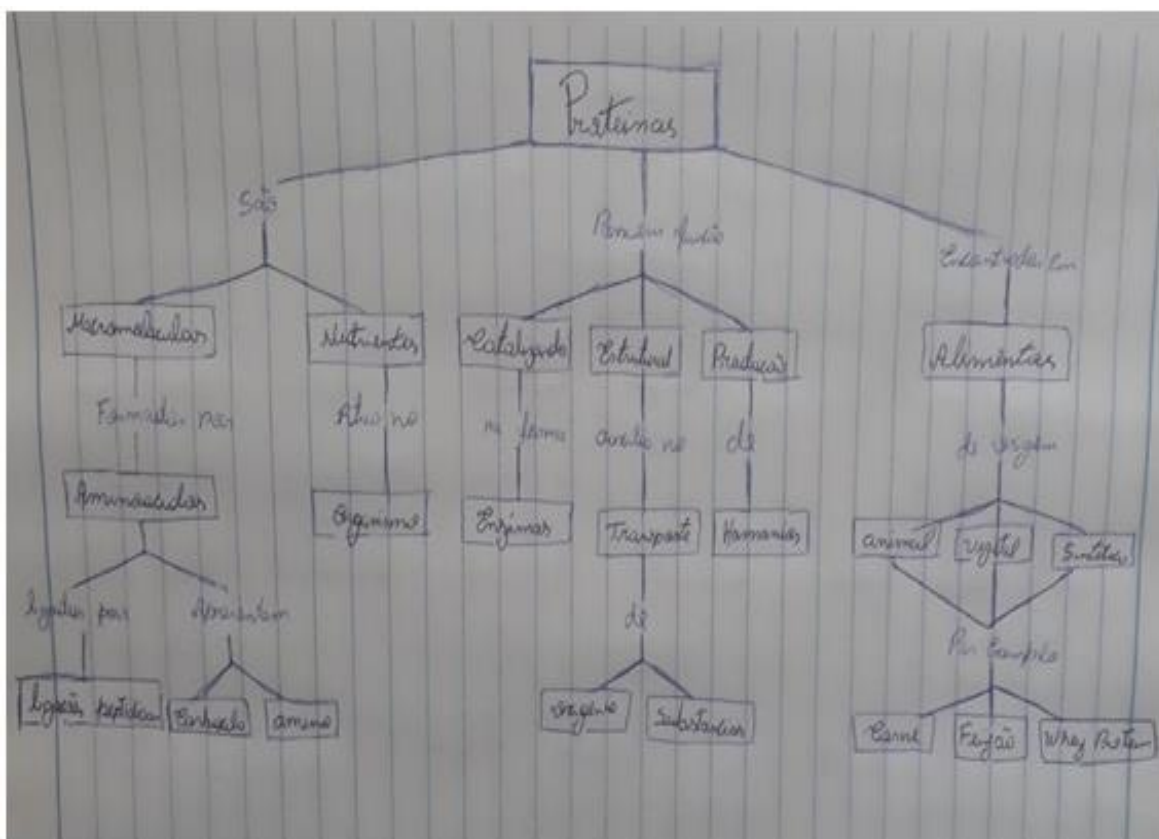 Proteínas
São
Possuem função
Encontradas em
Macromoléculas
Nutrientes
Catalizando
Estrutural
Produção
Alimentos
Formadas por
Atua no
na forma
auxilia no
de
de origem
Aminoácidos
Organismo
Enzimas
Transporte
Hormonios
animal
vegetal
Sintético
ligados por
Apresentam
de
Por Exemplo
ligações peptídicas
Carboxilo
amino
oxigênio
Substâncias
Carne
Feijão
Whey Protein